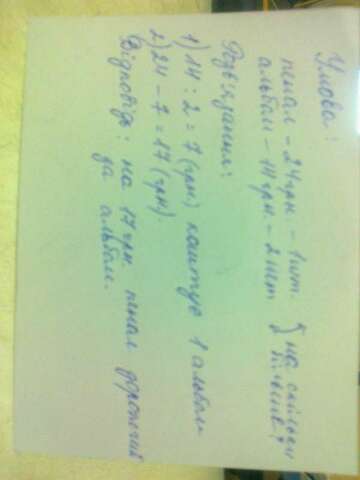 Умова:
пенал - 24 грн. - 1 шт. на скільки
альбом - 14 грн. - 2 шт більше?
Розв'язання:
1) 14 : 2 = 7 (грн) коштує 1 альбом
2) 24 - 7 = 17 (грн).
Відповідь: на 17 грн. пенал дорожчий
за альбом.